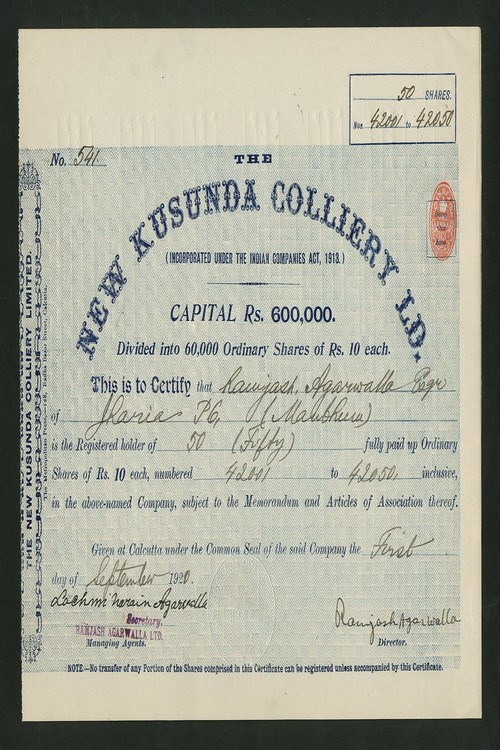 50 SHARES.
Nos. 42001 to 42050
No. 541.
THE
NEW KUSUNDA COLLIERY, LD.
(INCORPORATED UNDER THE INDIAN COMPANIES ACT, 1913.)
CAPITAL Rs. 600,000.
Divided into 60,000 Ordinary Shares of Rs. 10 each.
This is to Certify that Ramjash Agarwalla Esqr
of Jharia P.O, (Manbhum)
is the Registered holder of 50 (Fifty) fully paid up Ordinary
Shares of Rs. 10 each, numbered 42001 to 42050, inclusive,
in the above-named Company, subject to the Memorandum and Articles of Association thereof.
Given at Calcutta under the Common Seal of the said Company the First
day of September 1920.
Lachmi Narain Agarwalla
Secretary.
RAMJASH AGARWALLA LTD.
Managing Agents.
Ramjash Agarwalla
Director.
NOTE.—No transfer of any Portion of the Shares comprised in this Certificate can be registered unless accompanied by this Certificate.
THE NEW KUSUNDA COLLIERY LIMITED.
The Metropolitan Press, Calcutta.